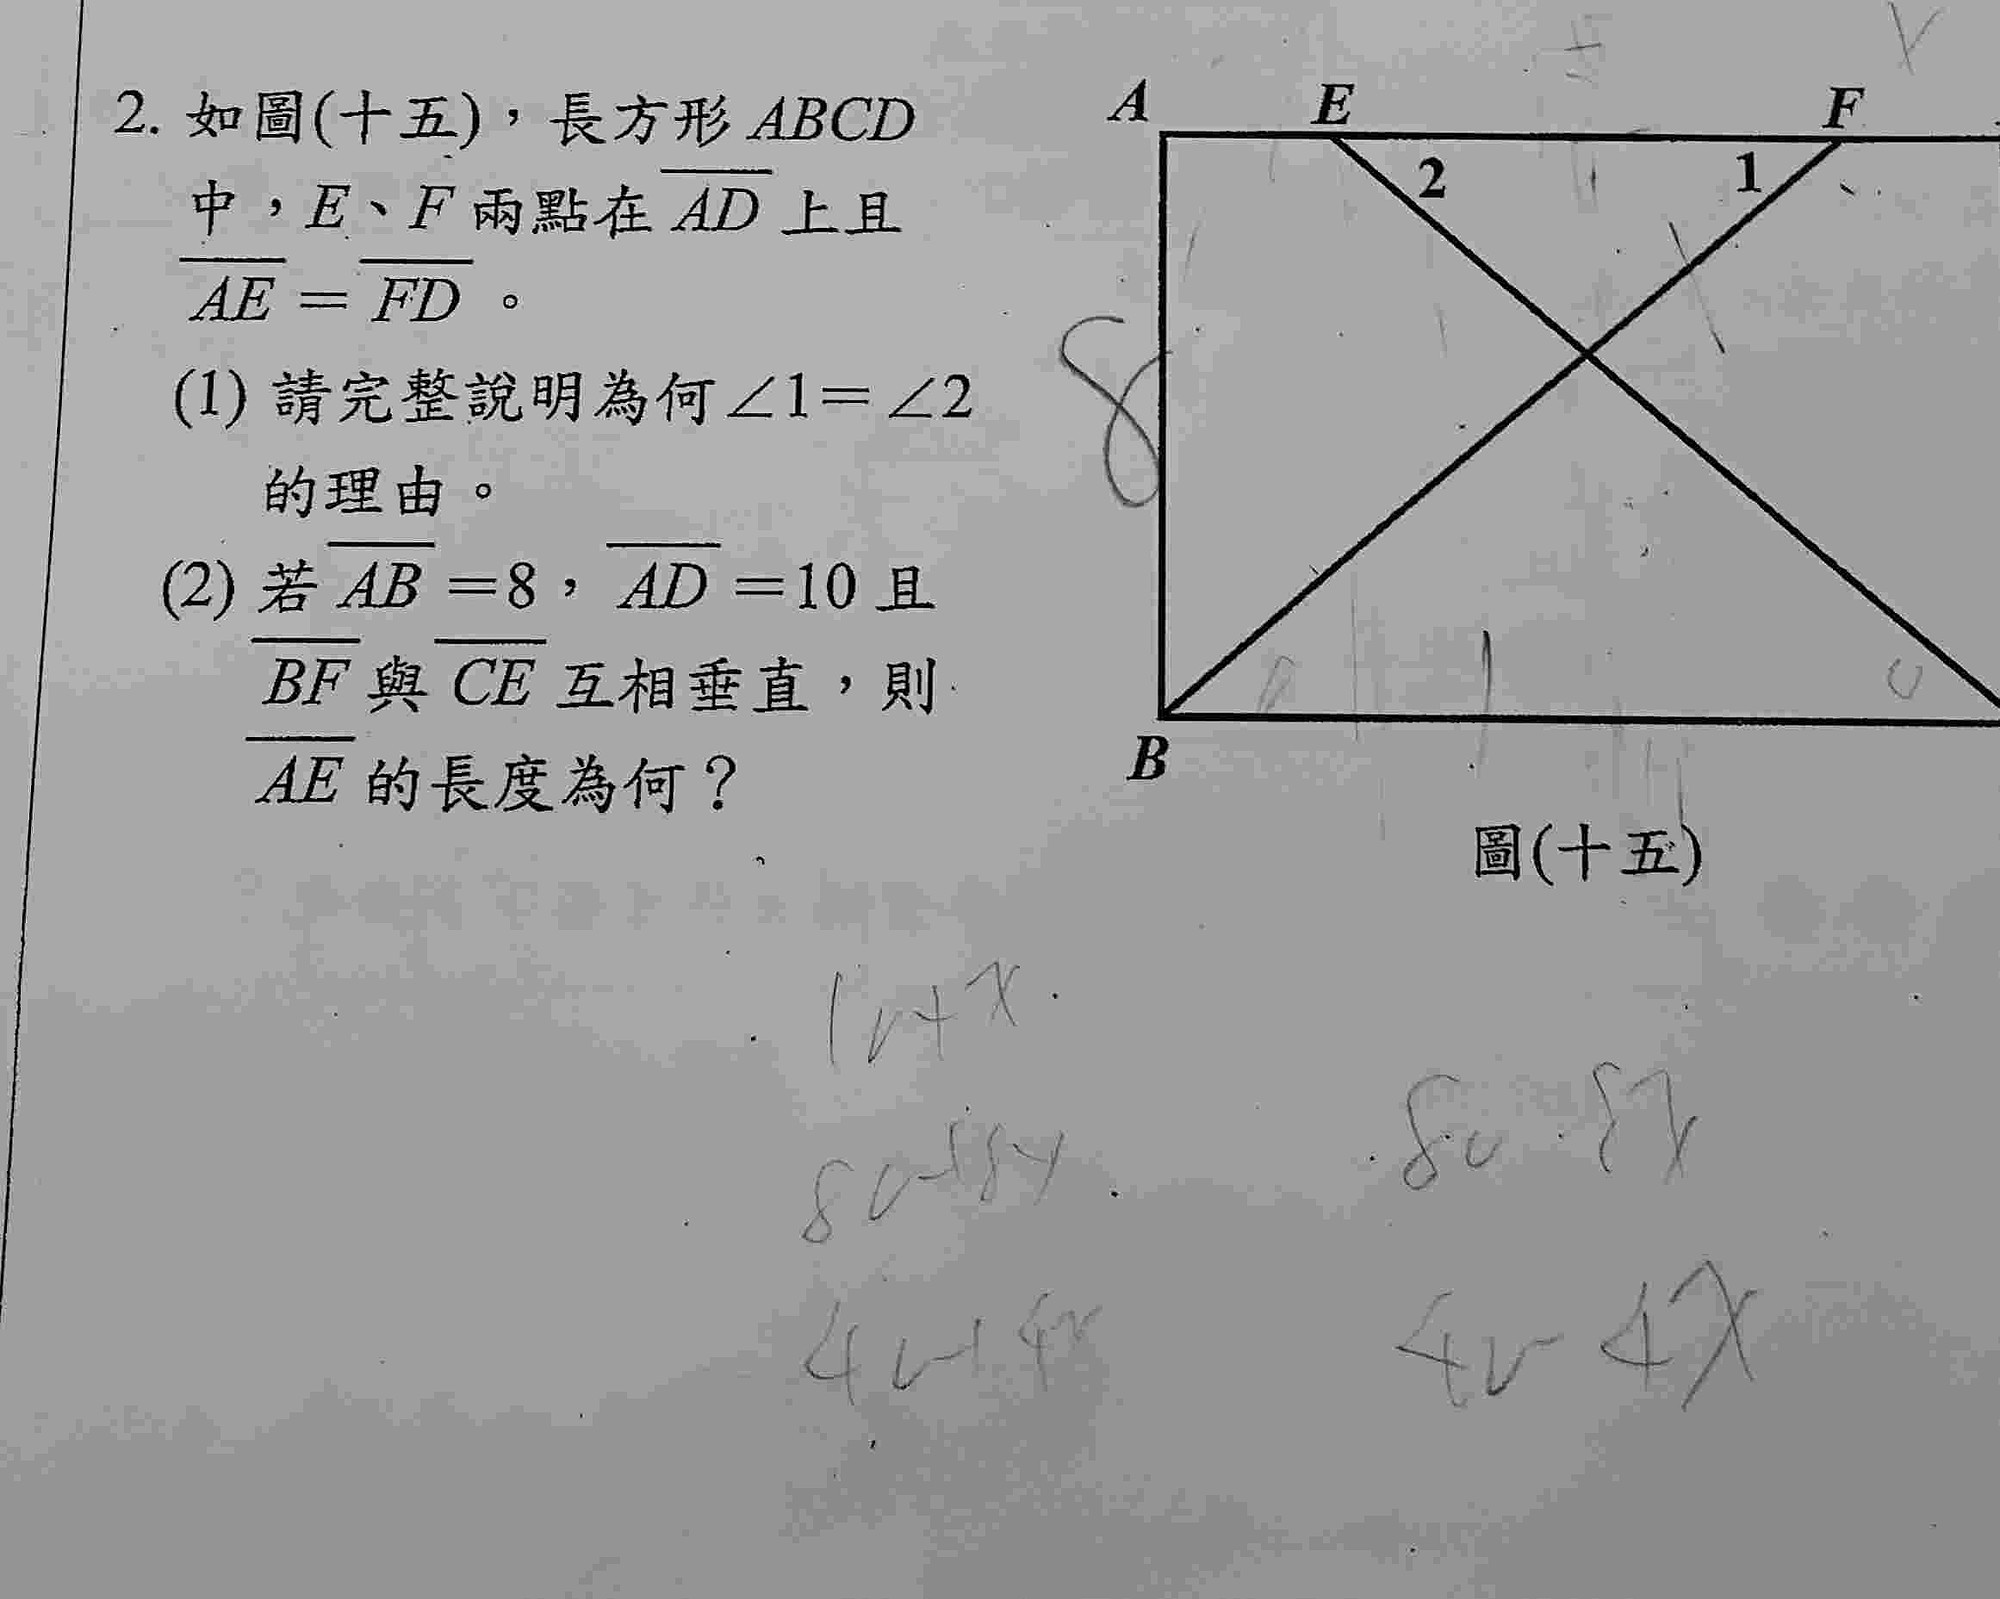 2. 如圖(十五)，長方形 ABCD
中，E、F 兩點在 AD 上且
AE = FD 。
(1) 請完整說明為何∠1= ∠2
的理由。
(2) 若 AB =8， AD =10 且
BF 與 CE 互相垂直，則
AE 的長度為何？
A E F
2 1
8
B
圖(十五)
10+x
80+8x
80-8x
40+4x
40-4x